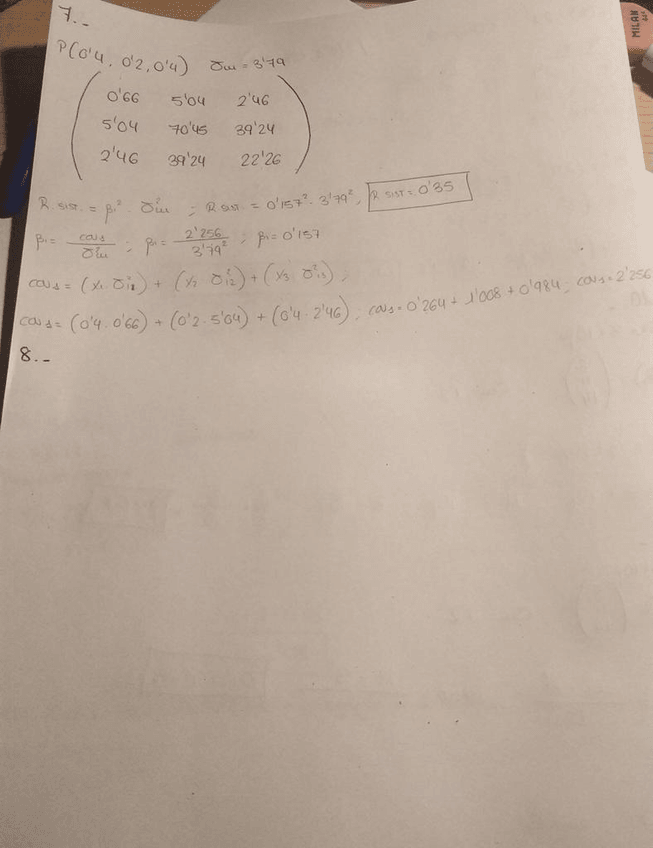 MILAN
7.-
P(0'4, 0'2, 0'4) σm = 3'79
0'66 5'04 2'46
5'04 70'45 39'24
2'46 39'24 22'26
R. SIST. = β1² · σ²m ; R. SIST. = 0'157² · 3'79² ; R SIST = 0'35
β1 = cov1 / σ²m ; β1 = 2'256 / 3'79² ; β1 = 0'157
cov1 = (x1 · σ²11) + (x2 · σ²12) + (x3 · σ²13) ;
cov1 = (0'4 · 0'66) + (0'2 · 5'04) + (0'4 · 2'46) ; cov1 = 0'264 + 1'008 + 0'984 ; cov1 = 2'256
8.-